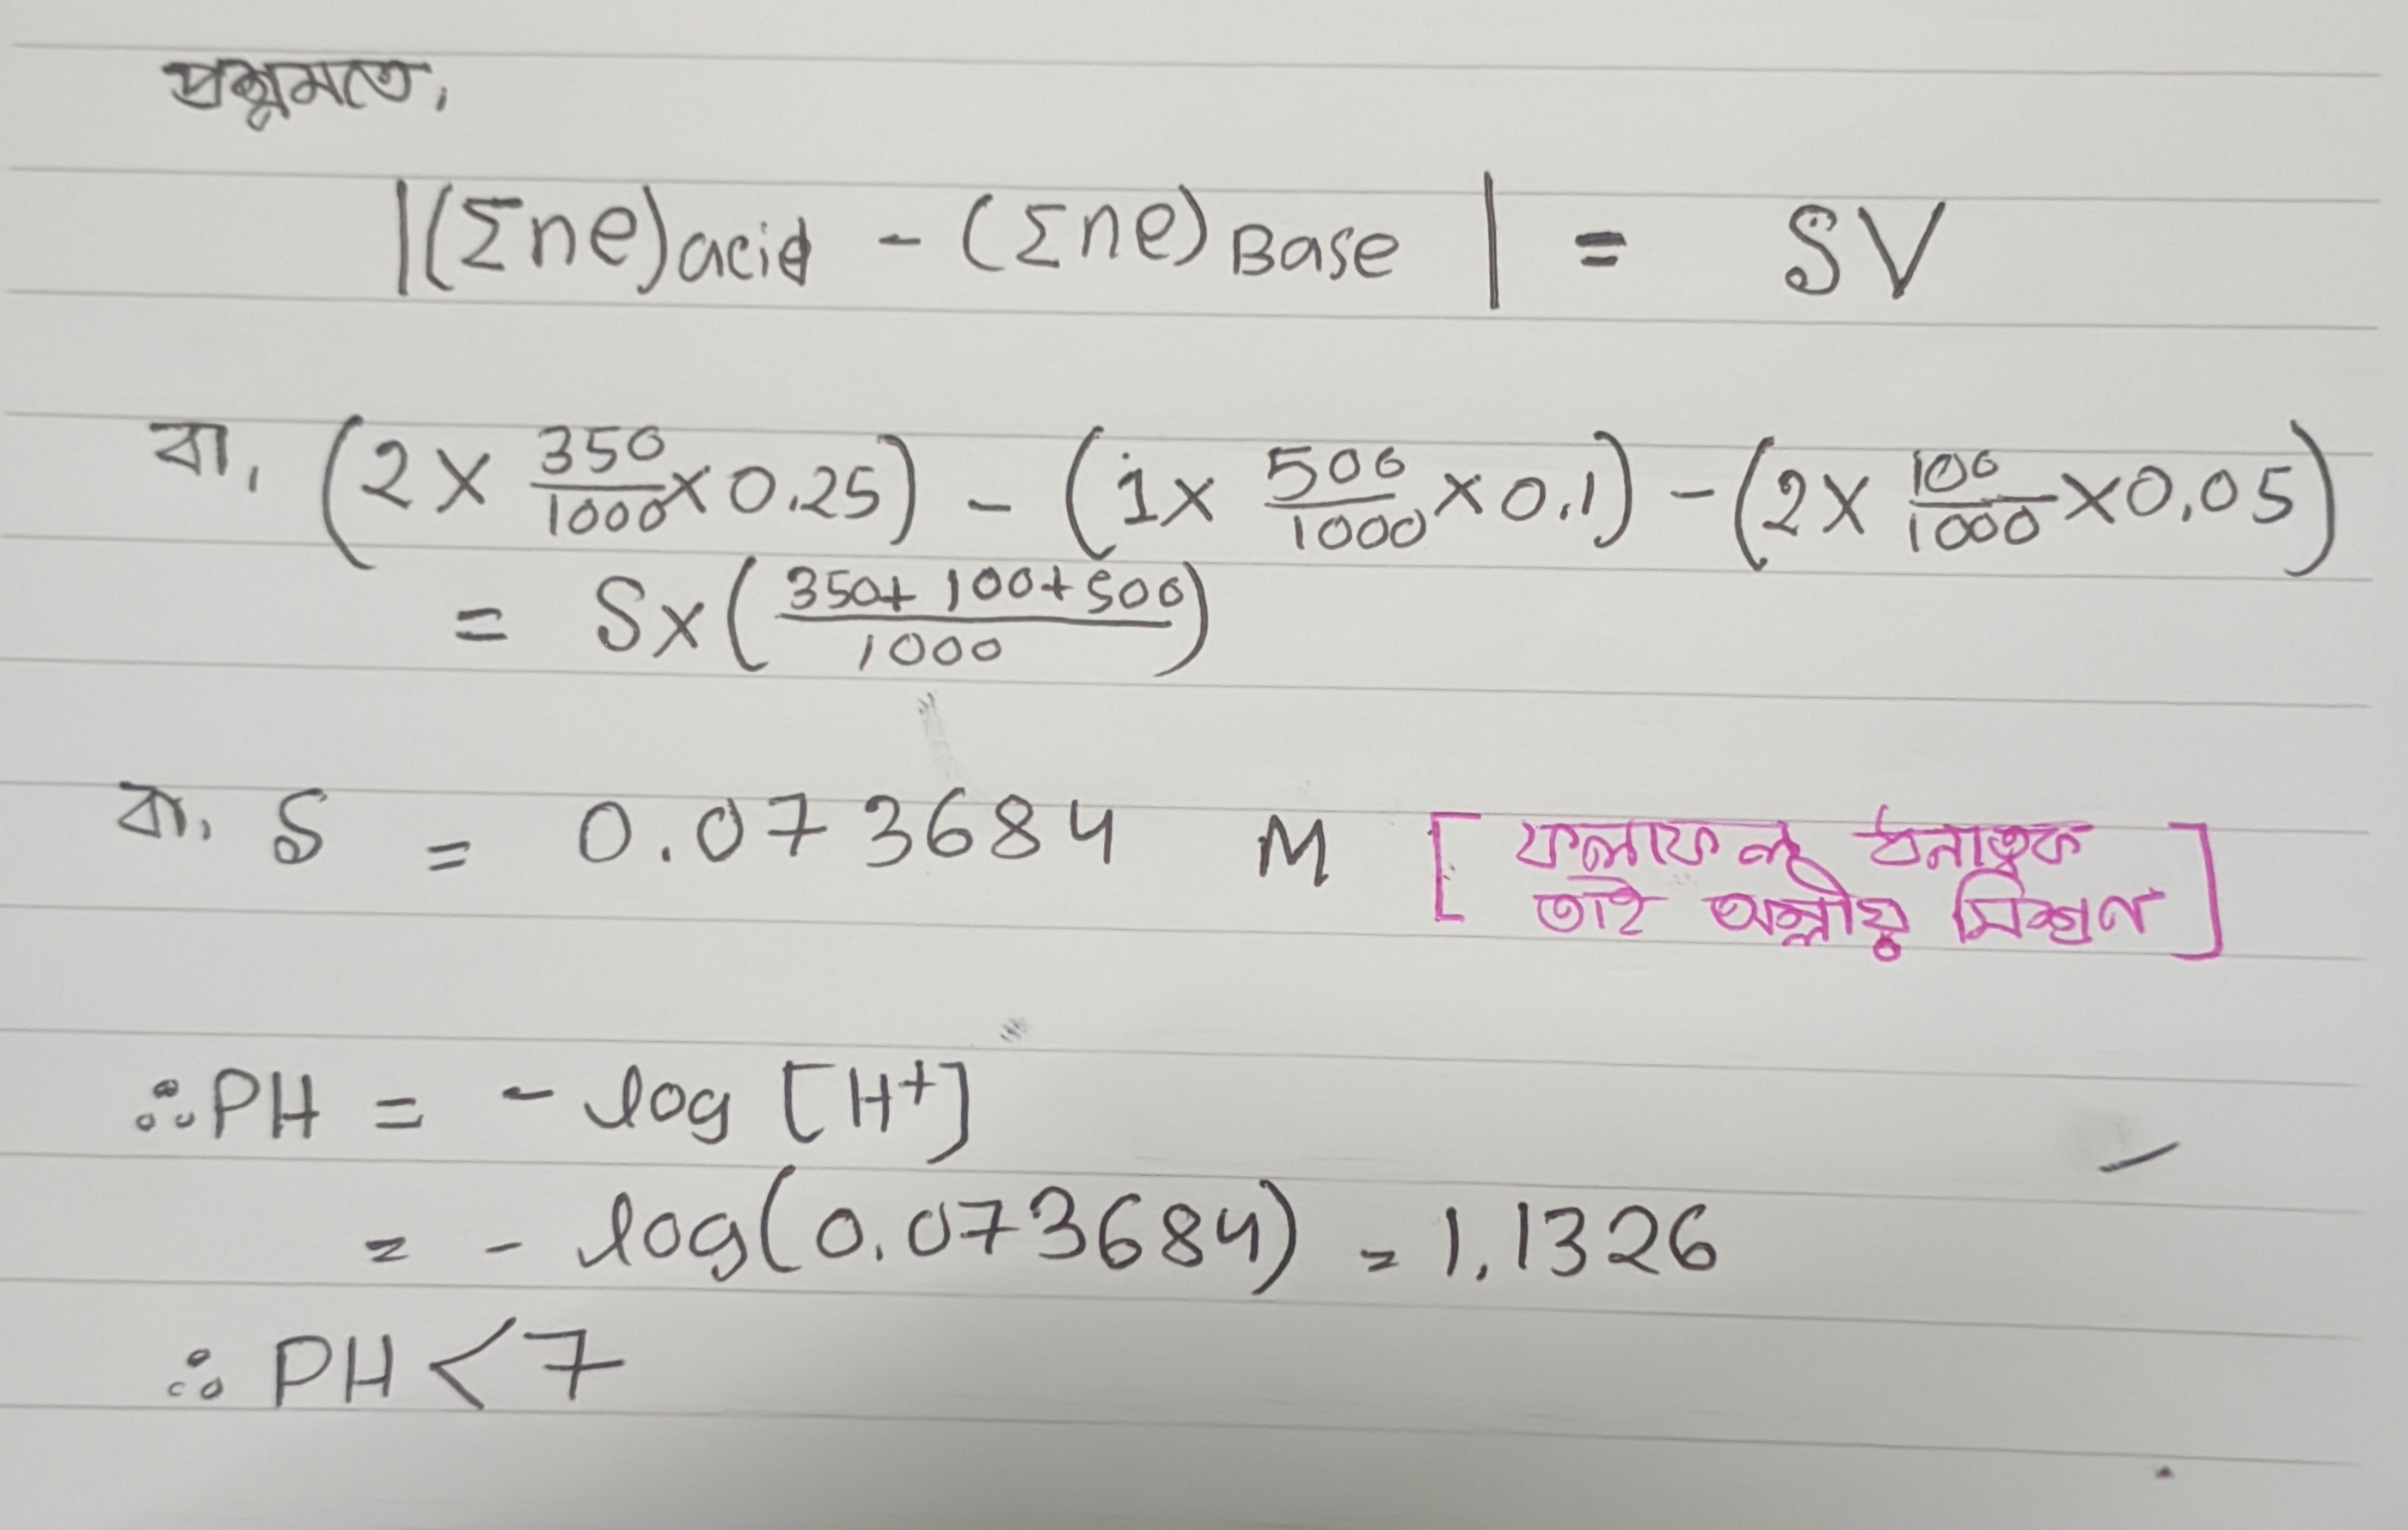 প্রশ্নমতে,
|(Σne)acid - (Σne)Base| = SV
বা, (2 × 350/1000 × 0.25) - (1 × 500/1000 × 0.1) - (2 × 100/1000 × 0.05)
= S× (350+100+500/1000)
বা, S = 0.073684 M [ফলাফল ধনাত্বক
তাই অম্লীয় মিশ্রণ]
∴ PH = - log [H+]
= - log(0.073684) = 1.1326
∴ PH < 7